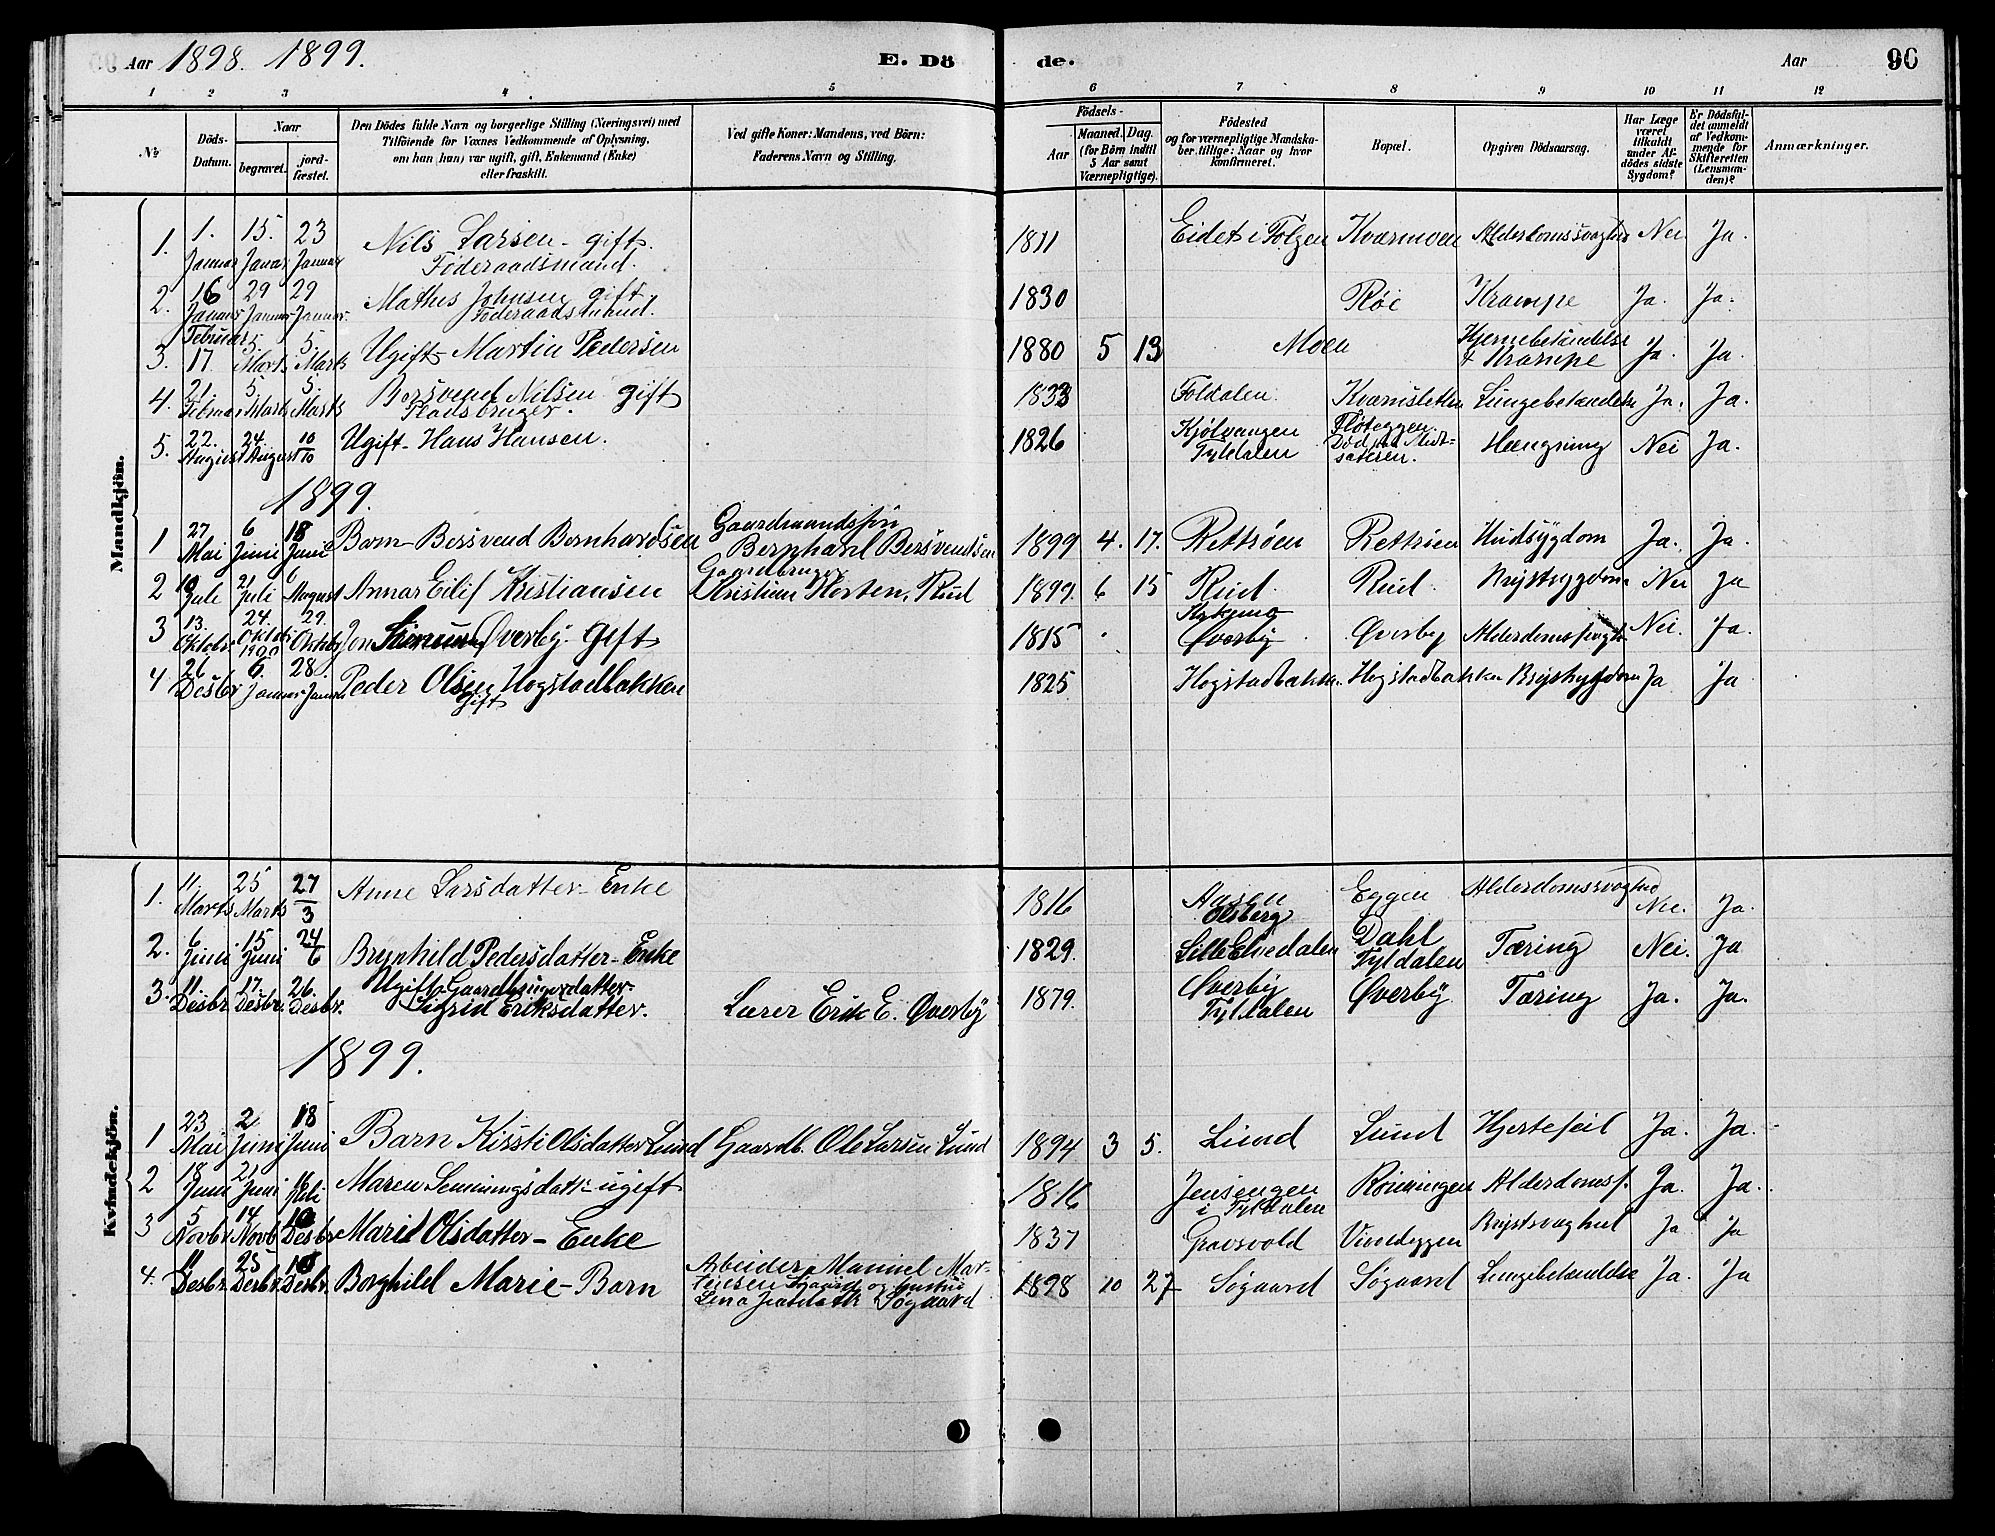 Aar 1898. 1899. E. Dö de. Aar 96
1 2 3 4 5 6 7 8 9 10 11 12
№
Döds-Datum.
Naar
begravet.
jord-fæstet.
Den Dödes fulde Navn og borgerlige Stilling (Næringsvei) med
Tilföiende for Voxnes Vedkommende af Oplysning,
om han (hun) var ugift, gift, Enkemand (Enke)
eller fraskilt.
Ved gifte Koner: Mandens, ved Börn:
Faderens Navn og Stilling.
Födsels-
Aar
Maaned. Dag.
(for Börn indtil
5 Aar samt
Værnepligtige).
Födested
og for værnepligtige Mandska-
ber tillige: Naar og hvor
konfirmeret.
Bopæl.
Opgiven Dödsaarsag.
Har Læge
været
tilkaldt
under Af-
dödes sidste
Sygdom?
Er Dödsfal-
det anmeldt
af Vedkom-
mende for
Skifteretten
(Lensman-
den)?
Anmærkninger.
Mandkjön.
1. 1. Januar 15. Januar 23 Januar Nils Larsen - gift. 1811 Eidet i Tolgen Kværnvoen Alderdomssvaghed Nei Ja.
Föderaadsmand.
2. 16 Januar 29 Januar 29 Januar. Mathis Johnsen gift 1830 Röe Krampe Ja. Ja.
Föderaadsmand.
3. Februar 17. 5. Marts 5. Marts Ugift Martin Pedersen 1880 5 13 Moen Hjernebetændelse + Krampe Ja. Ja.
4. 21. Februar 5. Marts 5. Marts Bersvend Nilsen gift 1833 Foldalen. Kværnsletten Lungebetændelse Ja. Ja.
Pladsbruger.
5. 22. August 24. August 10/10 Ugift - Hans Hansen. 1826 Kjölvangen Tyldalen Flöteggen. Död paa Midtsæteren. Hængning Nei Ja.
1899.
1 27 Mai 6 Juni 18 Juni Barn - Bersvend Bernhardsen Gaardmandssön Bernhard Bersvendsen 1899 4. 17. Rettröen Rettröen Hudsygdom Ja. Ja.
2 10 Juli 21 Juli 6 August Annar Eilif Kristiansen Gaardbruger Kristian Morten. Rud 1899. 6 15 Rud. Rud. Brystsygdom Nei Ja
3 13. Oktobr 24. Oktob. 29. Oktbr Jon Simensen Överby. Gift 1815 Överby Överby Alderdomssvagh. Nei. Ja.
4 26 Desbr 1900 6. Januar 28. Januar Peder Olsen Hogstadbakken 1825. Hogstadbakken. Hogstadbakken Brystsygdom Ja Ja
gift
Kvindekjön.
1. 11 Marts 25 Marts 27/3 Anne Larsdatter - Enke 1816 Aasen Elsberg Eggen Alderdomssvaghed Nei. Ja.
2. 6 Juni 15 Juni 24/6 Brynhild Pedersdatter - Enke 1829. Lille Elvedalen Dahl Tyldalen Tæring Nei. Ja
3. 11 Desbr 17. Desbr. 26. Desbr. Ugift Gaardbrugerdatter - Sigrid Eriksdatter. Lærer Erik E. Överby 1879. Överby Tyldalen Överby Tæring Ja. Ja.
1899.
1 23 Mai 2 Juni 18 Juni Barn Kirsti Olsdatter Lund Gaardb. Ole Larsen Lund 1894 3 5. Lund Lund Hjertefeil Ja. Ja.
2 18 Juni 21 Juni Juli Maren Henningsdatt - ugift 1816 Jensengen i Tyldalen Rönningen Alderdomss. Ja. Ja.
3 5 Novbr 14 Novb 10 Desbr Marit Olsdatter - Enke 1837 Gravsvold Vivedeggen Brystsvaghed Ja Ja
4. 11 Desbr. 25 Desbr. 10 Desbr. Borghild Marie - Barn Arbeider Manuel Martinsen Sögaard og hustru Lina Sögaard 1898 10 27 Sögaard Sögaard Lungebetændelse Ja. Ja